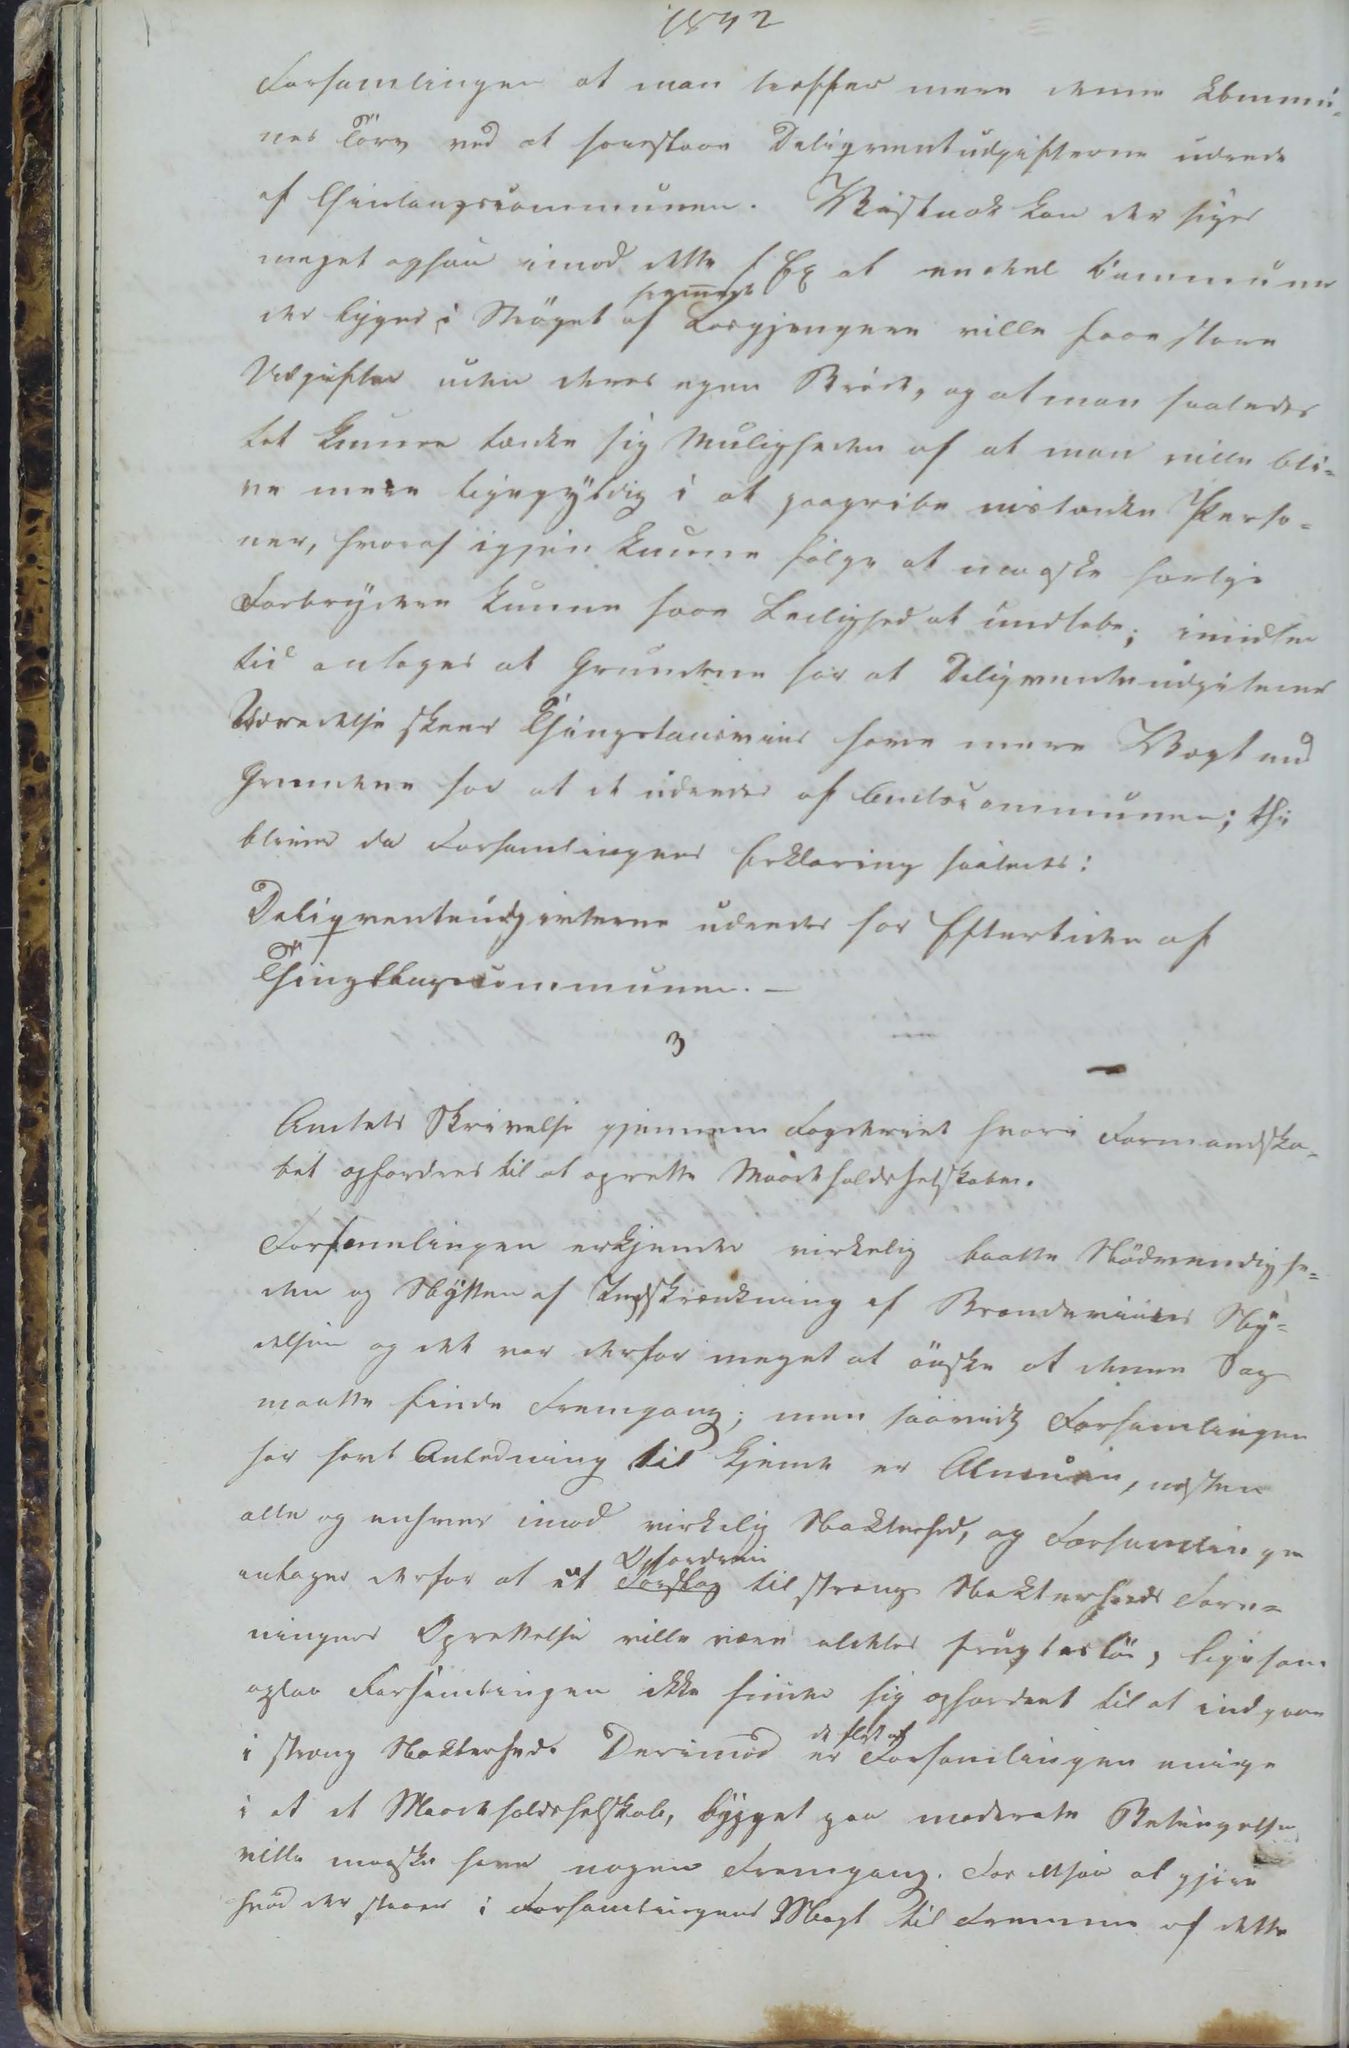 1842
Forsamlingen at man træffer mere denne Commu-
nes Tarv ved at foreslaae Deliqventudgifterne udrede
af Thinglaugscommunen. Vistnok kan der siges
meget ogsaa imod dette f Ex at enckel Commune
der ligger i Strøget af Løsgjengere ville faae store
Udgifter uden deres egen Brøde, og at man saaledes
let kunne tænke sig Muligheden af at man ville bli-
ve mere ligegyldig i at paagribe mistænkte Perso-
ner, hvoraf igjen kunne følge at maaske farlige
Forbrydere kunne faae Leilighed at undløbe; imidler
tid antages at Grundene for at Deliqventudgifternes
Udredelse skeer Thinglaugviis have mere Vægt end
Grundene for at de udredes af Amtscommunen; thi
bliver da Forsamlingens Erklæring saaledes:
Deliqventudgivterne udredes for Eftertiden af
Thinglaugscommunen. —
3
Amtets Skrivelse gjennem Fogderiet hvori Formandska-
bet opfordres til at oprette Maadeholdsselskaber.
Forsamlingen erkjender virkelig baade Nødvendighe-
den og Nytten af Indskrænkning af Brændeviinets Ny-
delse og det var derfor meget at ønske at denne Sag
maatte finde Fremgang; men saavidt Forsamlingen
har havt Anledning til kjende er Almuen, næsten
alle og enhver imod virkelig Ædruelighed, og Forsamlingen
antager derfor at et Forslag Opfordrin til streng Forе-
ningers Oprettelse ville være aldeles frugtesløs, ligesom
ogsaa Forsamlingen ikke finder sig opfordret til at indgaae
i streng Derimod er de fleste af Forsamlingen enige
i at et Maadeholdsselskab, bygget paa moderate Betingelser
ville maaske have nogen Fremgang. For altsaa at gjøre
hvad der staaer i Forsamlingens Magt til Fremme af dette